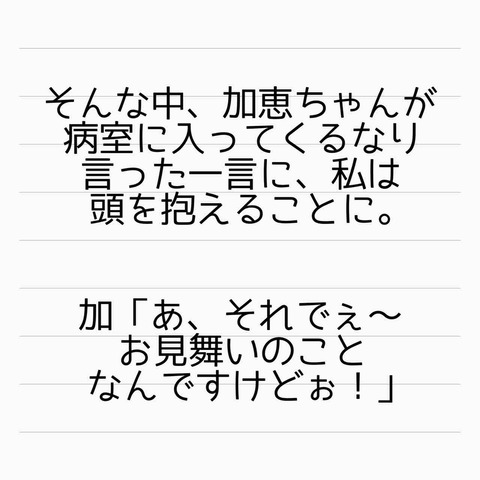 そんな中、加恵ちゃんが
病室に入ってくるなり
言った一言に、私は
頭を抱えることに。
加「あ、それでぇ～
お見舞いのこと
なんですけどぉ！」